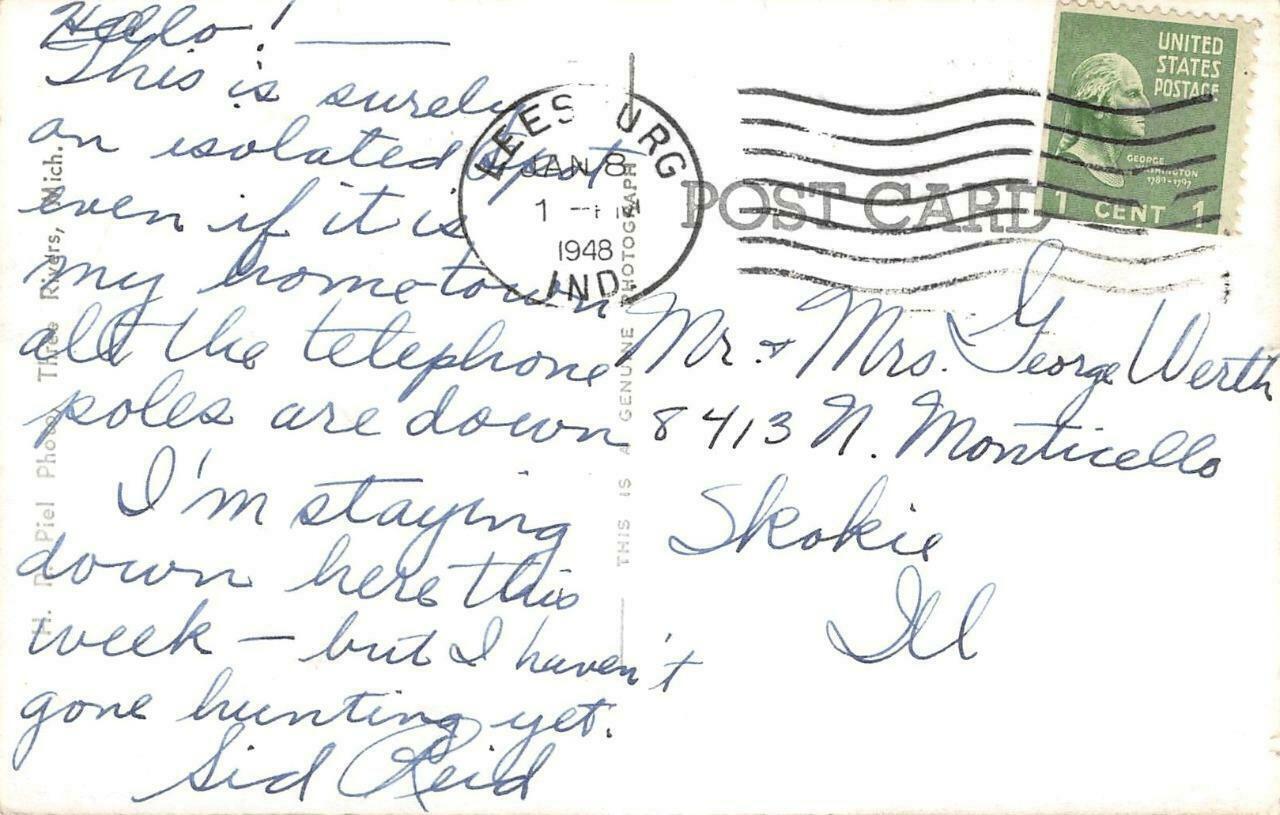 Hello!
This is surely
an isolated spot
even if it is
my hometown
all the telephone
poles are down
I'm staying
down here this
week — but I haven't
gone hunting yet.
Sid Reid
H. Piel Photo, Three Rivers, Mich.
THIS IS A GENUINE PHOTOGRAPH
LEES URG
JAN 8
1
1948
IND.
POST CARD
UNITED
STATES
POSTAGE
GEORGE
WASHINGTON
1789-1797
1 CENT 1
Mr. & Mrs. George Werth
8413 N. Monticello
Skokie
Ill